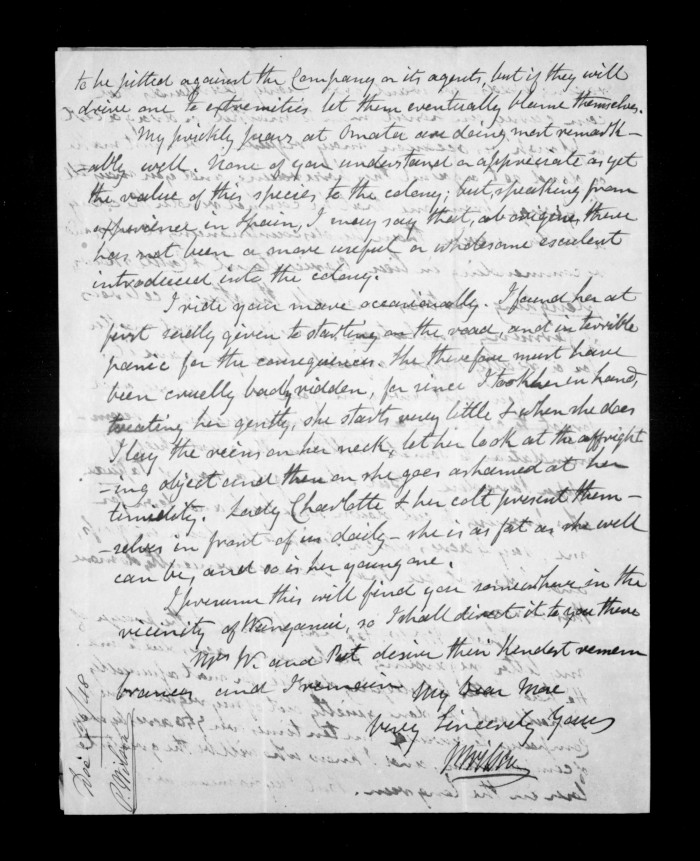 to be pitted against the Company or its agents, but if they will
drive one to extremities let them eventually blame themselves.
My prickly pears at Omata are doing most remark-
-ably well. None of you understand or appreciate as yet
the value of this species to the colony; but, speaking from
experience in Spain, I may say that, ab origine, there
has not been a more useful or wholesome esculent
introduced into the colony.
I ride your mare occasionally. I found her at
first sadly given to starting on the road, and in terrible
panic for the consequences. She therefore must have
been cruelly badly ridden, for since I took her in hand,
treating her gently, she starts very little & when she does
I lay the reins on her neck, let her look at the affright
-ing object and then on she goes ashamed at her
timidity. Lady Charlotte & her colt present them-
-selves in front of us daily - she is as fat as she well
can be, and so is her young one.
I presume this will find you somewhere in the
vicinity of Wanganui, so I shall direct it to you there
Mrs W. and Pet desire their kindest remem
brances and I remain My Dear
Very Sincerely Yours
P. Wilson